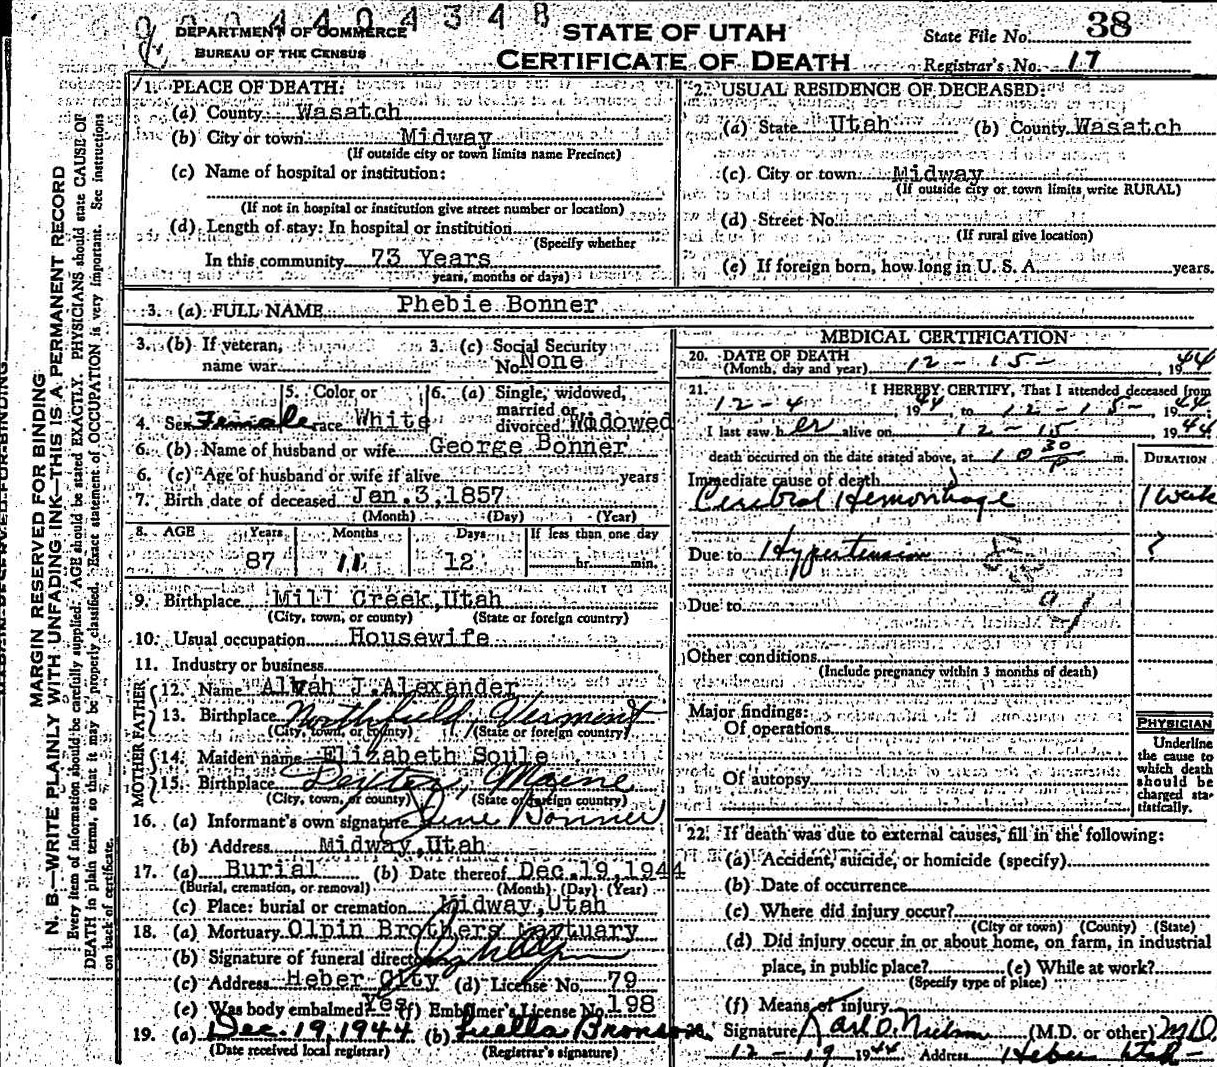 DEPARTMENT OF COMMERCE
BUREAU OF THE CENSUS
STATE OF UTAH
CERTIFICATE OF DEATH
State File No. 38
Registrar's No. 17
MARGIN RESERVED FOR BINDING
N. B.—WRITE PLAINLY WITH UNFADING INK—THIS IS A PERMANENT RECORD
Every item of information should be carefully supplied. AGE should be stated EXACTLY. PHYSICIANS should state CAUSE OF
DEATH in plain terms, so that it may be properly classified. Exact statement of OCCUPATION is very important. See instructions
on back of certificate.
1. PLACE OF DEATH:
(a) County Wasatch
(b) City or town Midway
(If outside city or town limits name Precinct)
(c) Name of hospital or institution:
(If not in hospital or institution give street number or location)
(d) Length of stay: In hospital or institution
(Specify whether
In this community 73 Years
years, months or days)
2. USUAL RESIDENCE OF DECEASED:
(a) State Utah (b) County Wasatch
(c) City or town Midway
(If outside city or town limits write RURAL)
(d) Street No.
(If rural give location)
(e) If foreign born, how long in U. S. A. years.
3. (a) FULL NAME Phebie Bonner
3. (b) If veteran, name war
3. (c) Social Security No. None
4. Sex Female
5. Color or race White
6. (a) Single, widowed, married or divorced Widowed
6. (b) Name of husband or wife George Bonner
6. (c) Age of husband or wife if alive years
7. Birth date of deceased Jan.3,1857
(Month) (Day) (Year)
8. AGE Years Months Days If less than one day
87 11 12 hr. min.
9. Birthplace Mill Creek,Utah
(City, town, or county) (State or foreign country)
10. Usual occupation Housewife
11. Industry or business
FATHER
12. Name Alvah J.Alexander
13. Birthplace Northfield, Vermont
(City, town, or county) (State or foreign country)
MOTHER
14. Maiden name Elizabeth Soule
15. Birthplace Dexter, Maine
(City, town, or county) (State or foreign country)
16. (a) Informant's own signature Bonner
(b) Address Midway,Utah
17. (a) Burial (b) Date thereof Dec.19,1944
(Burial, cremation, or removal) (Month) (Day) (Year)
(c) Place: burial or cremation Midway,Utah
18. (a) Mortuary Olpin Brothers Mortuary
(b) Signature of funeral director
(c) Address Heber City (d) License No. 79
(e) Was body embalmed? Yes (f) Embalmer's License No. 198
19. (a) Dec. 19, 1944 (b) Luella Bronson
(Date received local registrar) (Registrar's signature)
MEDICAL CERTIFICATION
20. DATE OF DEATH
(Month, day and year) 12 - 15 - 1944
21. I HEREBY CERTIFY, That I attended deceased from
12 - 4 1944 to 12 - 15 - 1944
I last saw her alive on 12 - 15 1944
death occurred on the date stated above, at 10 30 P m.
DURATION
Immediate cause of death
Cerebral Hemorrhage 1 week
Due to Hypertension ?
Due to
Other conditions
(Include pregnancy within 3 months of death)
Major findings:
Of operations
Of autopsy
PHYSICIAN
Underline
the cause to
which death
should be
charged sta-
tistically.
22. If death was due to external causes, fill in the following:
(a) Accident, suicide, or homicide (specify)
(b) Date of occurrence
(c) Where did injury occur?
(City or town) (County) (State)
(d) Did injury occur in or about home, on farm, in industrial
place, in public place? (e) While at work?
(Specify type of place)
(f) Means of injury
Signature Karl O. Nielson (M.D. or other) M.D.
12 - 19 1944 Address Heber Utah